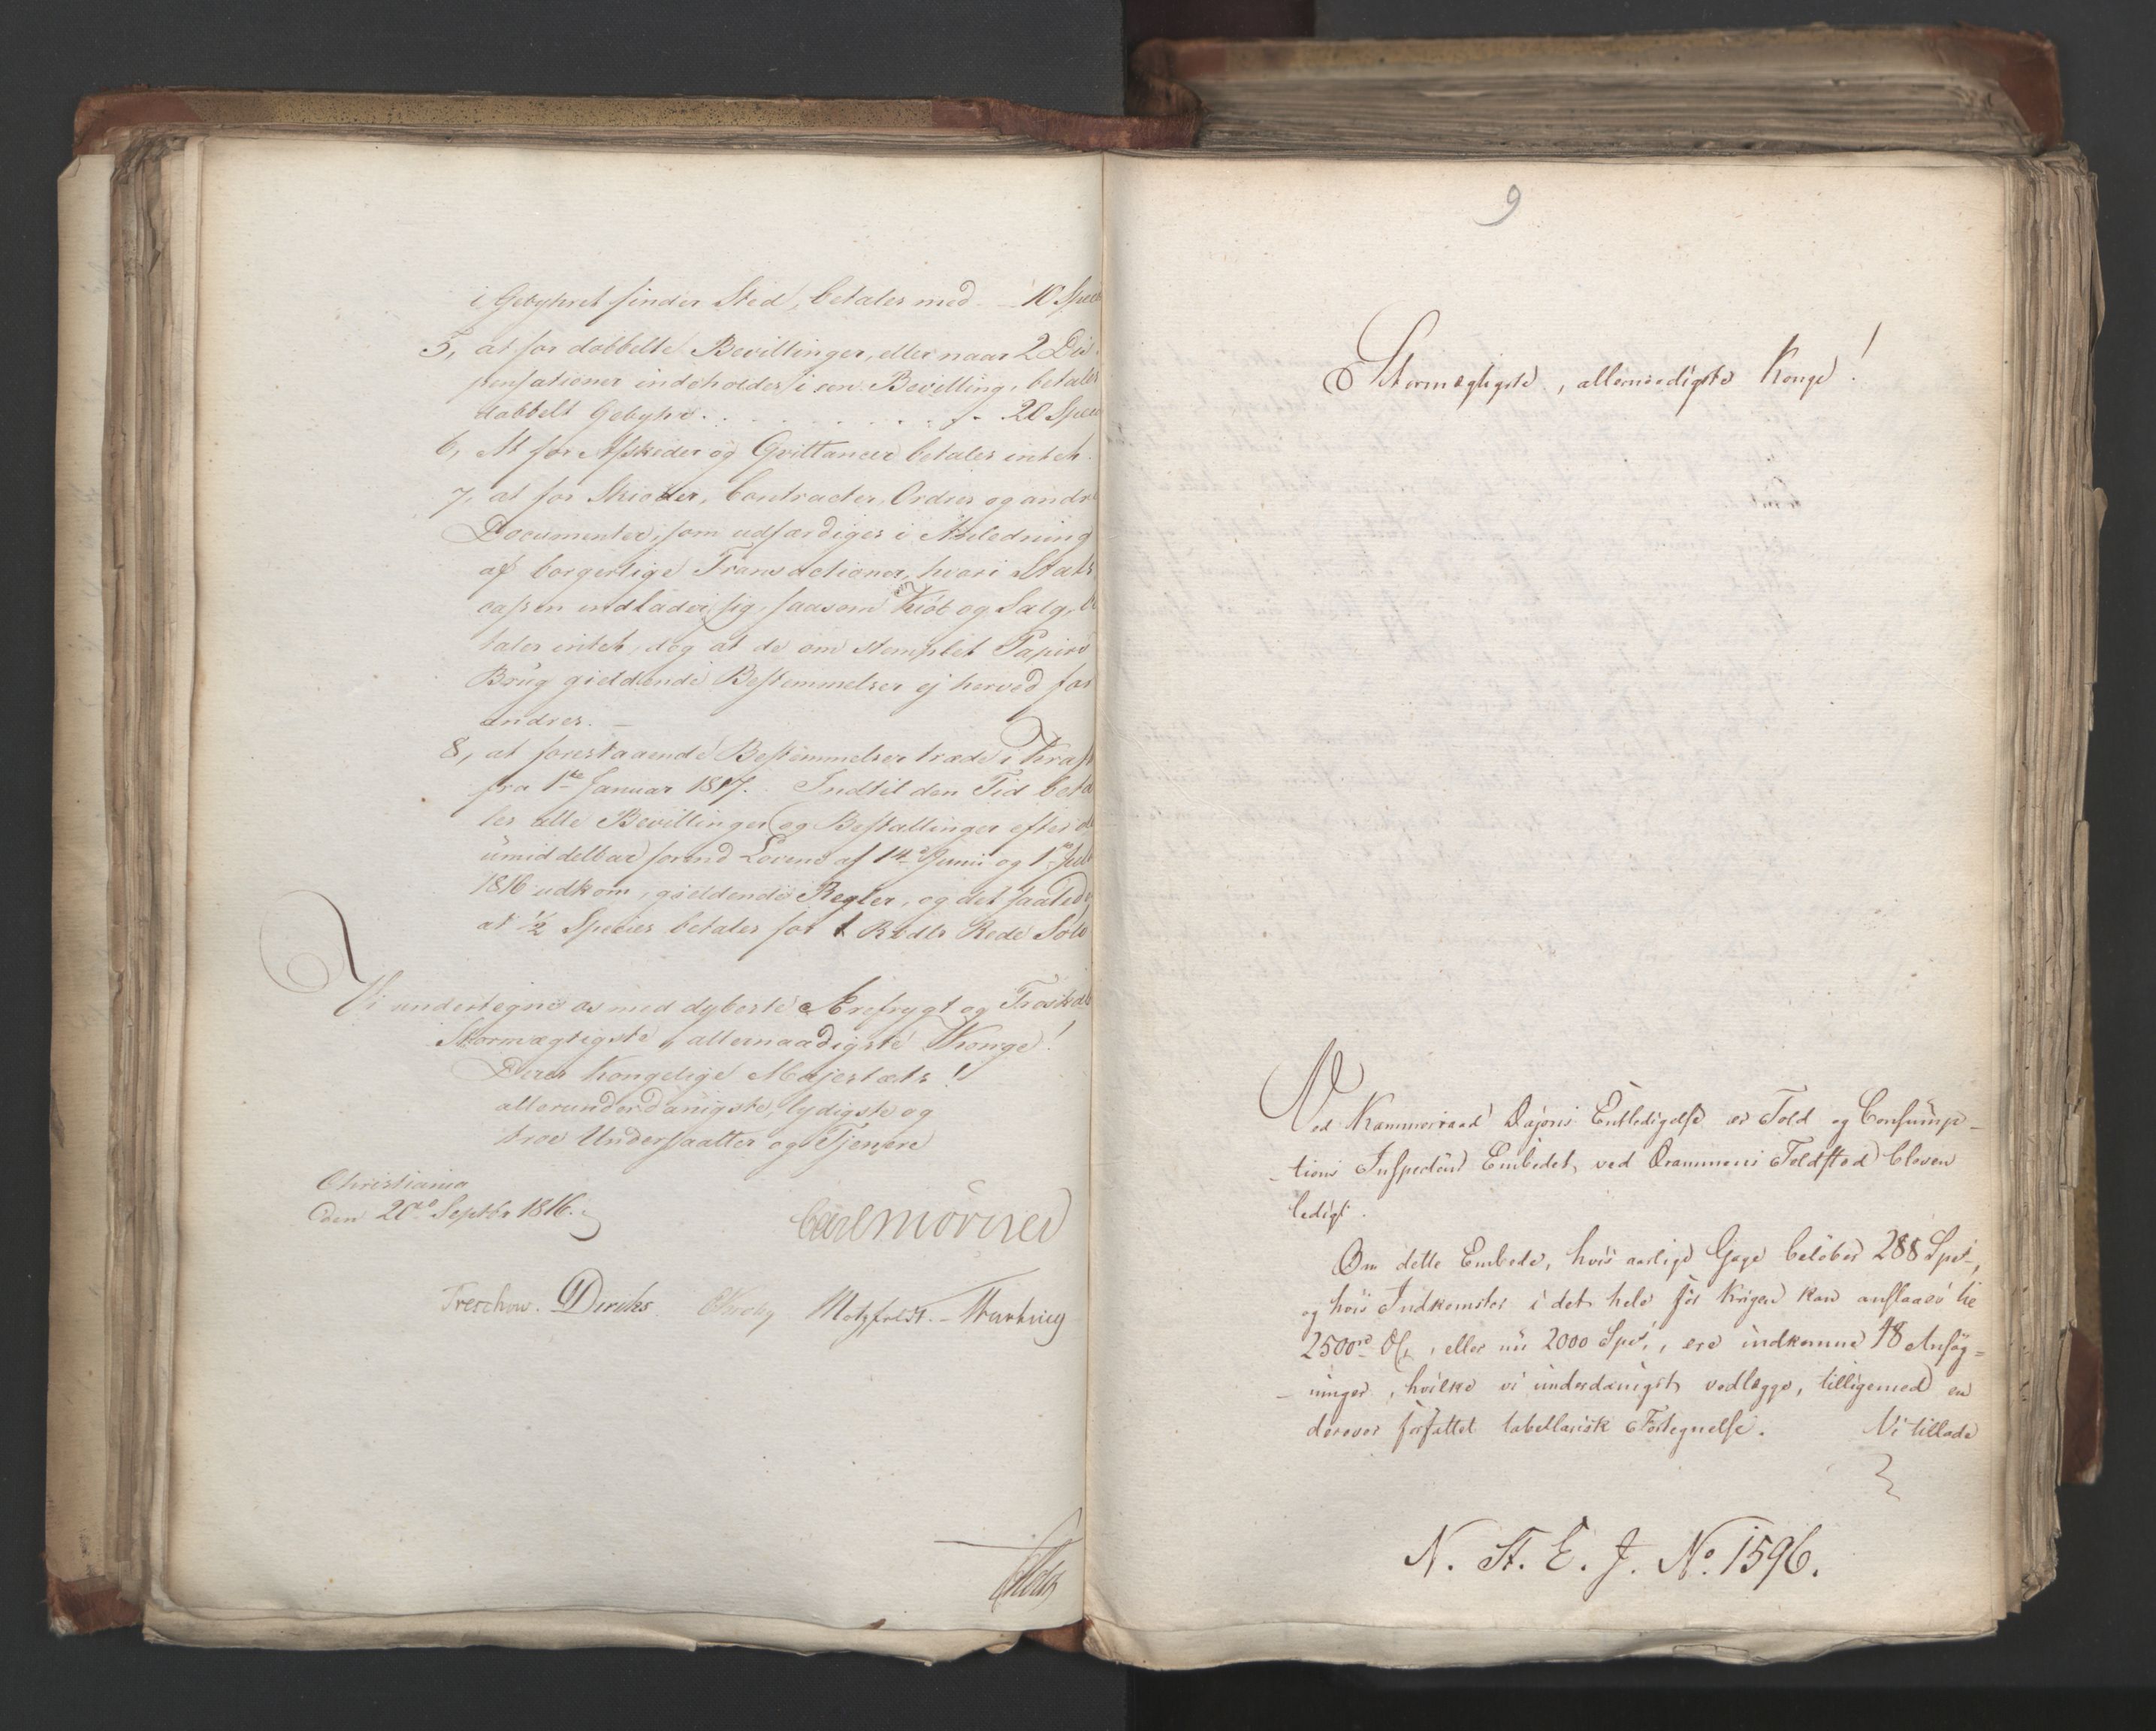 i Gebyhret finder Sted, betales med 10 Spec
5, at for dobbelte Bevillinger, eller naar 2 Dis-
pensationer indeholdes i een Bevilling, betales
dobbelt Gebyhr . . . . . . . . 20 Spec
6, At for Afskeder og Qvittancer betales intet.
7, at for Skiöder, Contracter, Ordrer og andre
Documenter, som udfærdiges i Anledning
af borgerlige Transactioner, hvori Stats
cassen indlader sig, saasom Kiöb og Salg, be
tales intet, dog at de om stemplet Papiirs
Brug gieldende Bestemmelser ej herved for
andres. —
8, at forestaaende Bestemmelser træde i Kraft
fra 1te Januar 1817. Indtil den Tid beta
les alle Bevillinger og Bestallinger efter de
umiddelbar forend Lovene af 14de Junii og 1ste Juli
1816 udkom, gieldende Regler, og det saaledes
at ½ Species betales for 1 Rbdlr Rede Sölv
Vi undertegne os med dybeste Ærefrygt og Troskab
Stormægtigste, allernaadigste Konge!
Deres Kongelige Majestæts!
allerunderdanigste, lydigste og
troe Undersaatter og Tjenere
Christiania
den 20de Septbr 1816.
Carl Mörner
Treschow. Diriks Krohg Motzfeldt. -
9
Stormægtigste, allernaadigste Konge!
Ved Kammerraad Entledigelse er Told og Consump-
-tions Inspecteur Embedet ved Drammens Toldsted bleven
ledigt.
Om dette Embede, hvis aarlige Gage belöber 288 Spd.,
og hvis Indkomster i det hele för Krigen kan anslaaes til
2500 , eller nu 2000 Spd., ere indkomne 48 Ansög=
-ninger, hvilke vi underdanigst vedlægge, tilligemed en
derover forfattet tabellarisk Fortegnelse. Vi tillade
N. St. E. J. No. 1596.